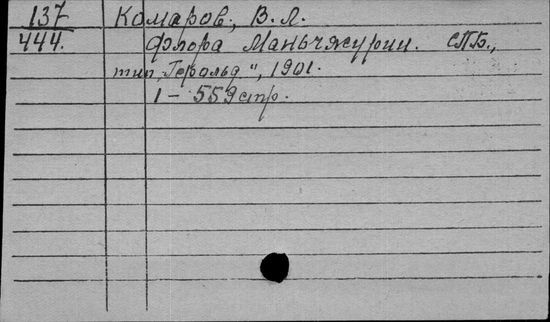 137 Комаров, В. Л.
444. Флора Маньчжурии. СПБ.,
тип. „Герольд", 1901.
1 – 559 стр.